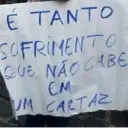 É TANTO
SOFRIMENTO
QUE NÃO CABE
EM
UM CARTAZ